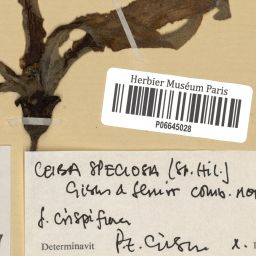 Herbier Muséum Paris
P06645028
CEIBA SPECIOSA [St. Hil.]
Gibbs & Semir comb. nov
f. crispiflora
Determinavit P.E. Gibbs